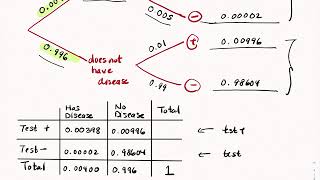 0.005
− 0.00002
0.996
does not
have
disease
0.01
+ 0.00996
0.99
− 0.98604
Has
Disease
No
Disease
Total
Test + 0.00398 0.00996 ← tst +
Test− 0.00002 0.98604 ← test
Total 0.00400 0.996 1